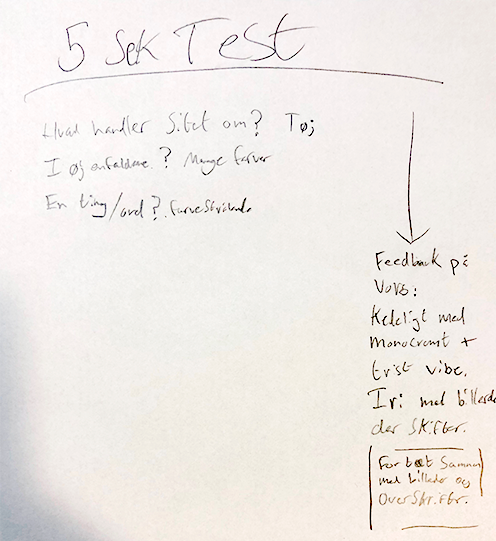 5 sek Test
Hvad handler Sitet om? Tøj
I øjenfaldene? Mange farver
En ting/ord? farvestrålende
Feedback på
Vores:
Kedeligt med
monocromt +
trist vibe.
Iri med billeder
der skifter.
For tæt Sammen
med billeder og
OverSkrifter.